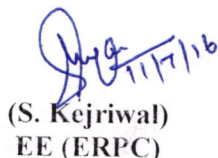 11/7/16
(S. Kejriwal)
EE (ERPC)